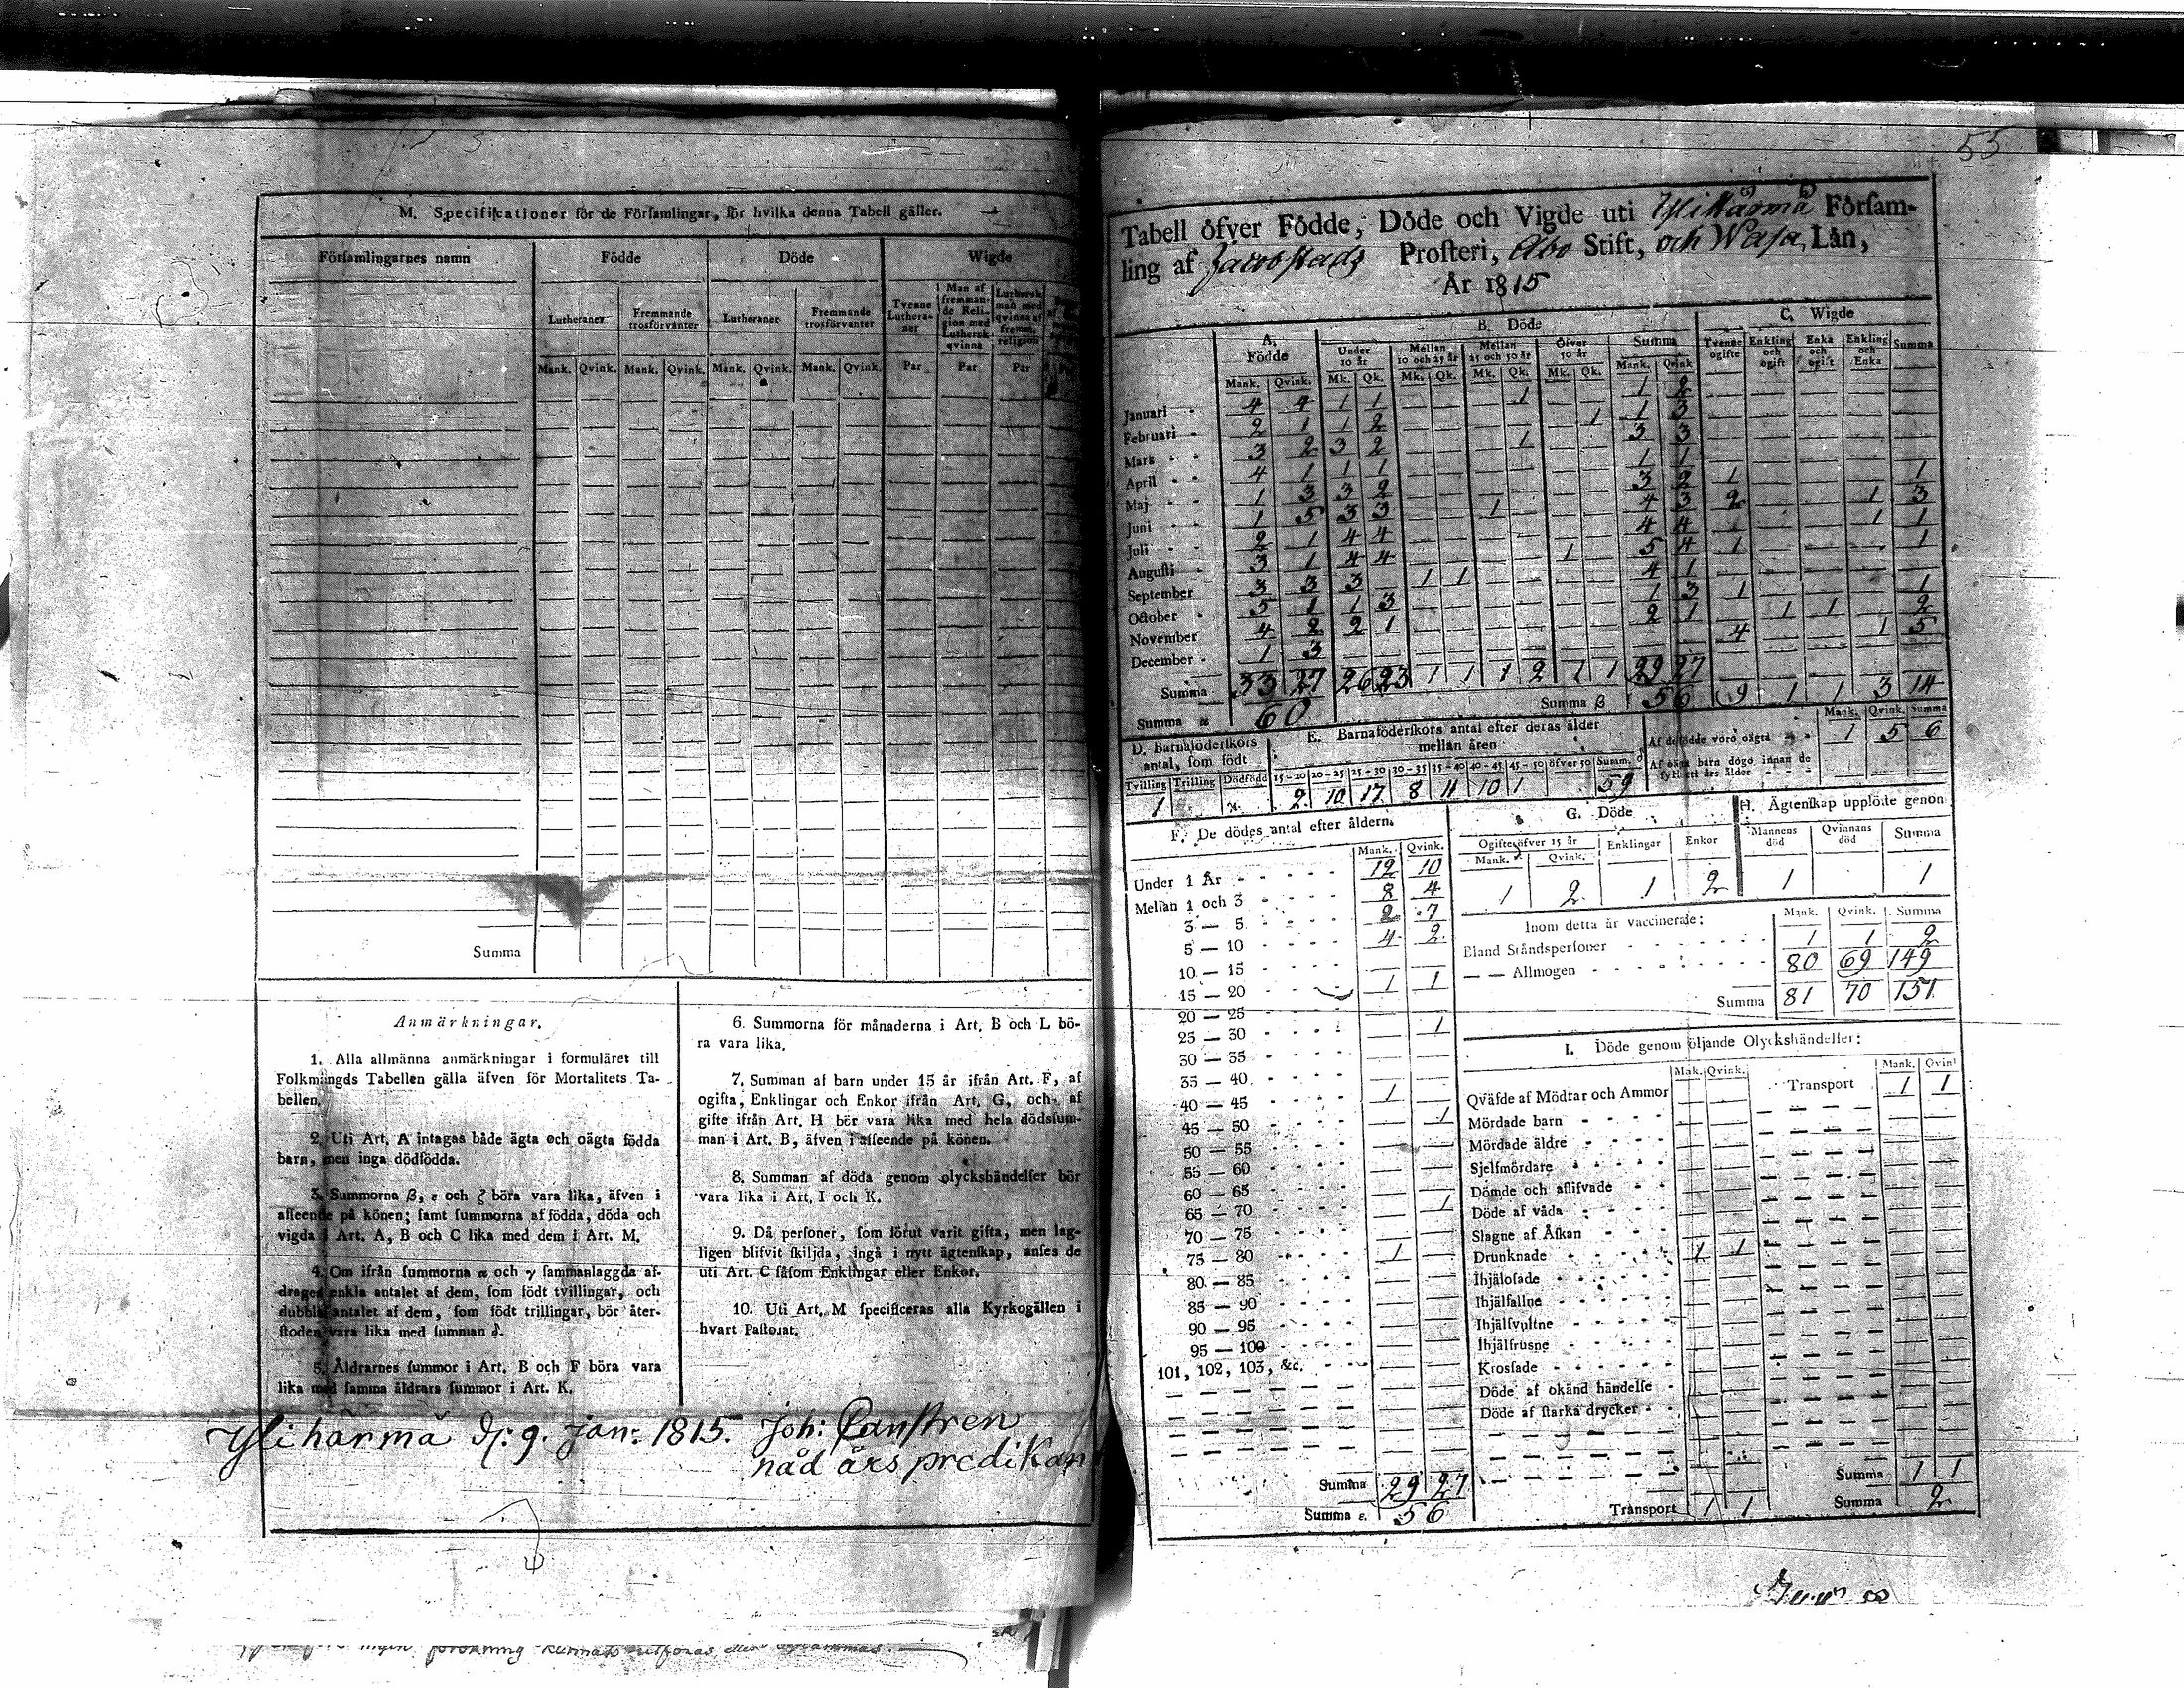 55
M. Specificationer för de Församlingar, för hvilka denna Tabell gäller.
Församlingarnes namn Födde Döde Wigde
Lutheraner Fremmande trosförvanter Lutheraner Fremmande trosförvanter Tvenne Lutheraner Man af fremmande Religion med Luthersk qvinna Luthersk man med qvinna af fremm. religion
Mank. Qvink. Mank. Qvink. Mank. Qvink. Mank. Qvink. Par Par Par
Summa
Anmärkningar.
1. Alla allmänna anmärkningar i formuläret till
Folkmängds Tabellen gälla äfven för Mortalitets Ta-
bellen.
2. Uti Art. A intagas både ägta och oägta födda
barn, men inga dödfödda.
3. Summorna β, ε och ζ böra vara lika, äfven i
afseende på könen; samt summorna af födda, döda och
vigda i Art. A, B och C lika med dem i Art. M.
4. Om ifrån summorna α och γ sammanlaggda af-
drages enkla antalet af dem, som födt tvillingar, och
dubbla antalet af dem, som födt trillingar, bör åter-
stoden vara lika med summan δ.
5. Åldrarnes summor i Art. B och F böra vara
lika med samma åldrars summor i Art. K.
6. Summorna för månaderna i Art. B och L bö-
ra vara lika.
7. Summan af barn under 15 år ifrån Art. F, af
ogifta, Enklingar och Enkor ifrån Art. G, och af
gifte ifrån Art. H bör vara lika med hela dödssum-
man i Art. B, äfven i afseende på könen.
8. Summan af döda genom olyckshändelser bör
vara lika i Art. I och K.
9. Då personer, som förut varit gifta, men lag-
ligen blifvit skiljda, ingå i nytt ägtenskap, anses de
uti Art. C såsom Enklingar eller Enkor.
10. Uti Art. M specificeras alla Kyrkogällen i
hvart Pastorat.
Yliharmä d: 9. Jan: 1815. Joh: Canstren
nåd års predikan
Tabell öfver Födde, Döde och Vigde uti Ylikärmä Försam-
ling af Jacobstads Prosteri, Åbo Stift, och Wasa Län,
År 1815
A. Födde B. Döde C. Wigde
Under 10 år Mellan 10 och 25 år Mellan 25 och 50 år Öfver 50 år Summa Tvenne ogifte Enkling och ogift Enka och ogift Enkling och Enka Summa
Mank. Qvink. Mk. Qk. Mk. Qk. Mk. Qk. Mk. Qk. Mank. Qvink
Januari 4 4 1 1 1 1 2
Februari 2 1 1 2 1 1 3
Mars 3 2 3 2 1 3 3
April 4 1 1 1 1 1
Maj 1 3 3 2 3 2 1 1
Juni 1 5 3 3 1 4 3 2 1 3
Juli 2 1 4 4 4 4 1 1
Augusti 3 1 4 4 1 5 4 1 1
September 3 3 3 1 1 4 1
October 5 1 1 3 1 3 1 1
November 4 2 2 1 2 1 1 1 2
December 1 3 4 1 5
Summa 33 27 26 23 1 1 1 2 1 1 29 27
Summa α 60 Summa β 56 9 1 1 3 14
D. Barnaföderskors antal, som födt
Tvilling Trilling Dödfödd
1
E. Barnaföderskors antal efter deras ålder mellan åren
15-20 20-25 25-30 30-35 35-40 40-45 45-50 öfver 50 Summ. δ
2 10 17 8 11 10 1 59
Mank. Qvink. Summa
Af de födde voro oägta 1 5 6
Af oägta barn dögo innan de fyllt ett års ålder
F. De dödes antal efter åldern.
Mank. Qvink.
Under 1 År 12 10
Mellan 1 och 3 8 4
3 — 5 2 7
5 — 10 4 2
10 — 15
15 — 20 1 1
20 — 25
25 — 30 1
30 — 35
35 — 40
40 — 45 1
45 — 50 1
50 — 55
55 — 60
60 — 65
65 — 70 1
70 — 75
75 — 80 1
80 — 85
85 — 90
90 — 95
95 — 100
101, 102, 103, &c.
Summa 29 27
Summa ε. 56
G. Döde
Ogifte öfver 15 år Enklingar Enkor
Mank. Qvink.
1 2 1 2
H. Ägtenskap upplöste genom
Mannens död Qvinnans död Summa
1 1
Inom detta år vaccinerade: Mank. Qvink. Summa
Bland Ståndspersoner 1 1 2
— — Allmogen 80 69 149
Summa 81 70 151
I. Döde genom följande Olyckshändelser:
Mank. Qvink. Mank. Qvink
Qväfde af Mödrar och Ammor Transport 1 1
Mördade barn
Mördade äldre
Sjelfmördare
Dömde och aflifvade
Döde af våda
Slagne af Åskan
Drunknade 1 1
Ihjälosade
Ihjälfallne
Ihjälsvultne
Ihjälfrusne
Krossade
Döde af okänd händelse
Döde af starka drycker
Summa 1 1
Transport 1 1 Summa 2